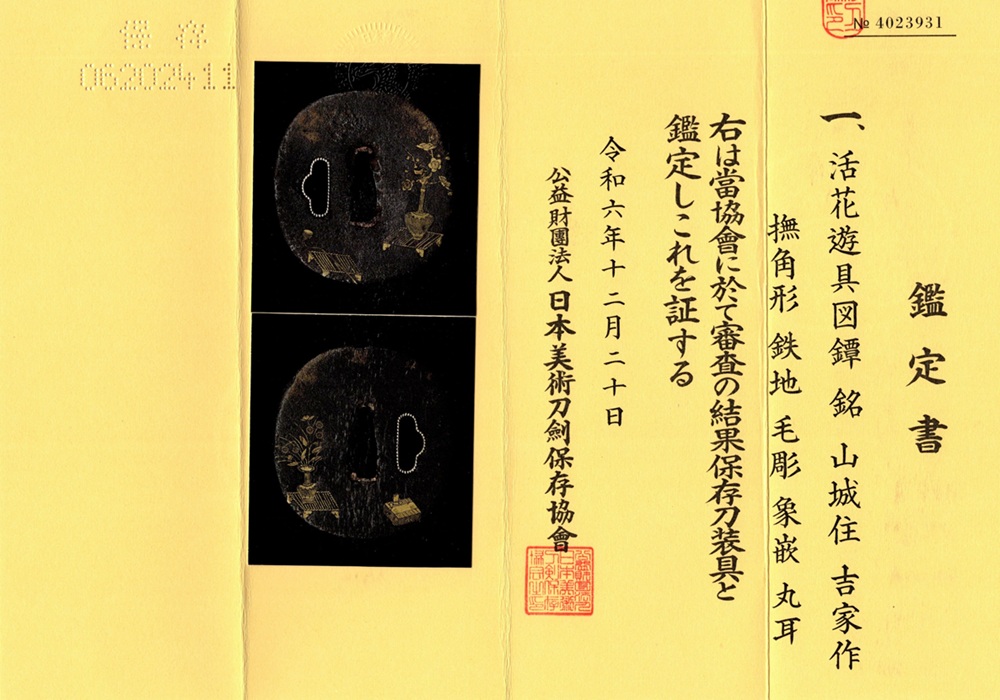 № 4023931
鑑定書
一、活花遊具図鐔 銘 山城住 吉家作
撫角形 鉄地 毛彫 象嵌 丸耳
右は當協會に於て審査の結果保存刀装具と
鑑定しこれを証する
令和六年十二月二十日
公益財團法人 日本美術刀劍保存協會
保存
06202411